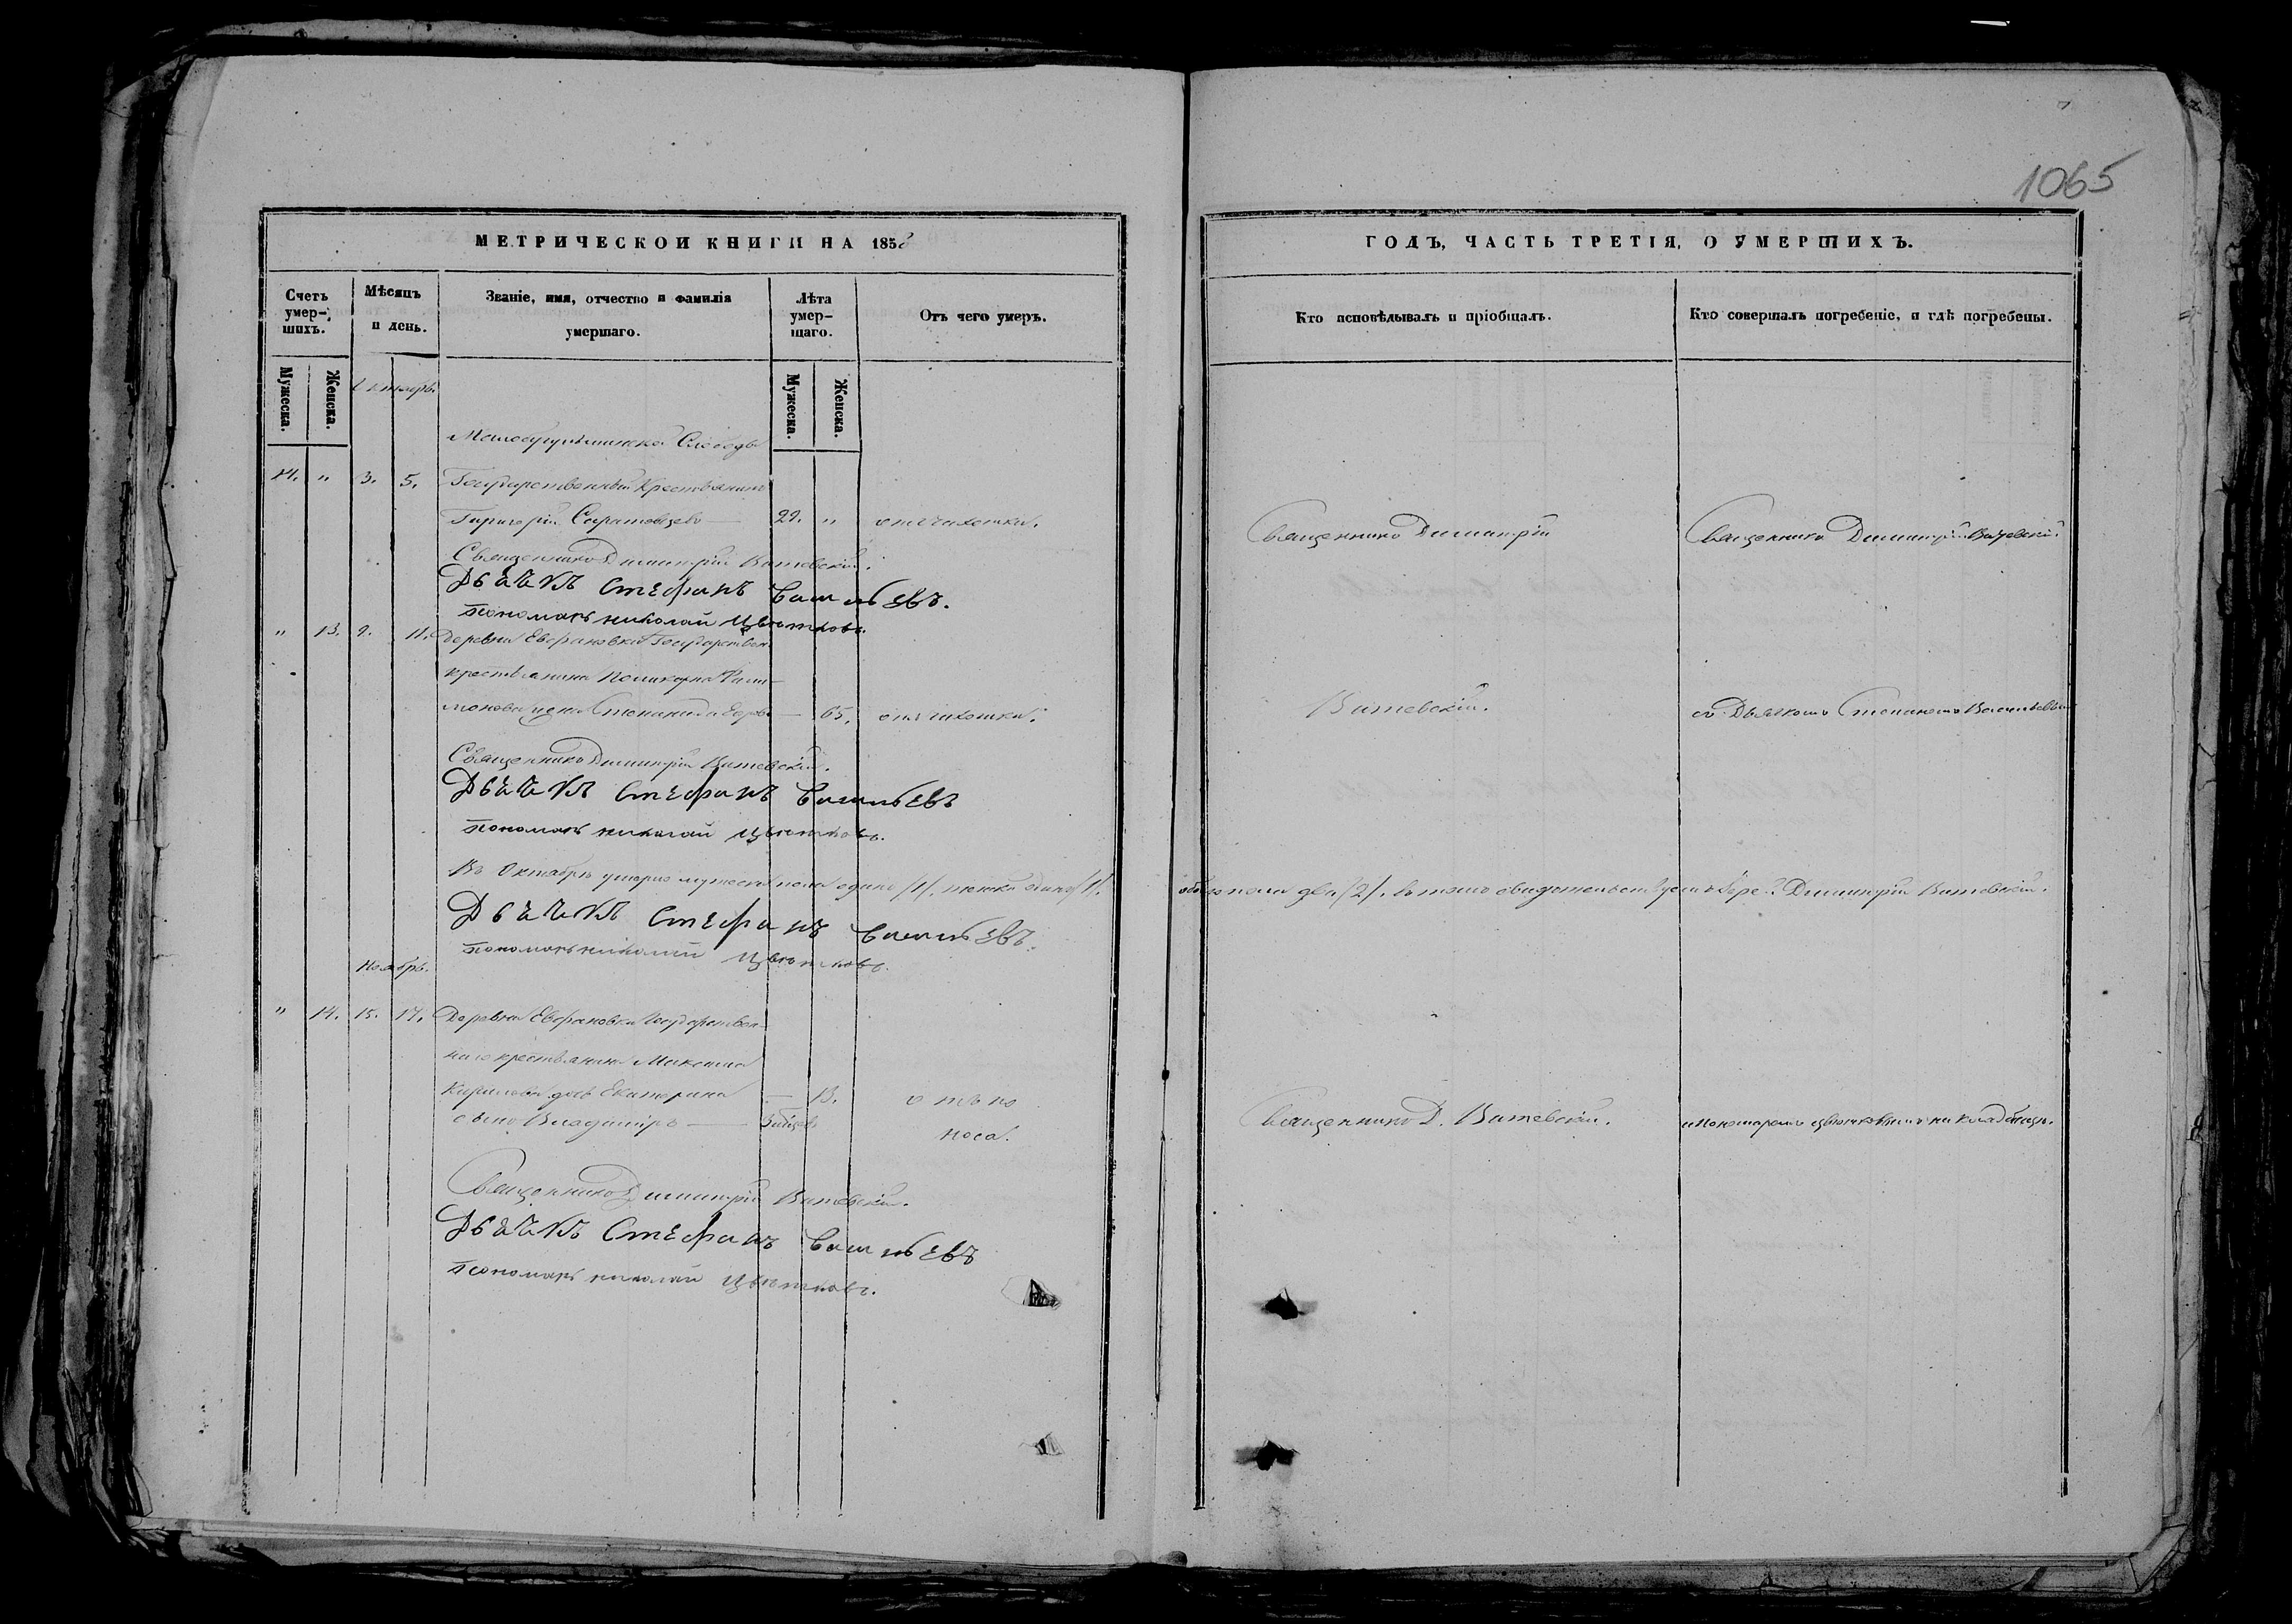 1065
МЕТРИЧЕСКОЙ КНИГИ НА 1858
ГОДЪ, ЧАСТЬ ТРЕТІЯ, О УМЕРШИХЪ.
Счетъ умер-шихъ.
Мѣсяцъ и день.
Званіе, имя, отчество и фамилія умершаго.
Лѣта умер-шаго.
Отъ чего умеръ.
Кто исповѣдывалъ и пріобщалъ.
Кто совершалъ погребеніе, и гдѣ погребены.
Мужеска.
Женска.
Мужеска.
Женска.
Октябрь.
Слободы
14. " 3. 5. Государственный Крестьянинъ
Григорій 29. " отъ чахотки.
Священникъ Димитрій
Священникъ Димитрій Витевскій
Священникъ Димитрій Витевскій.
Дьячикъ Стефанъ Васильевъ.
Пономарь николай Цвѣтковъ.
" 13. 9. 11. Деревни Евфановки Государствен.
крестьянина Поликарпа Фили-
монова жена Степанида — 65. отъ чахотки.
Витевскій.
съ Дьячкомъ Стефаномъ Васильевымъ
Священникъ Димитрій Витевскій.
Дьячикъ Стефанъ Васильевъ
Пономарь николай Цвѣтковъ.
Въ Октябрѣ умерло мужеска пола одинъ /1/. женска одна /1/. обоего пола два /2/. въ томъ свидѣтельствуемъ Іерей Димитрій Витевскій.
Дьячикъ Стефанъ Васильевъ.
Пономарь николай Цвѣтковъ.
Ноябрь.
" 14. 15. 17. Деревни Евфановки Государствен-
наго крестьянина Максима
Кирилова дочь Екатерина — 13. отъ по
носа.
Священникъ Д. Витевскій.
и Пономаремъ Цвѣтковымъ на кладбищѣ.
сынъ Владиміръ —
Священникъ Димитрій Витевскій.
Дьячикъ Стефанъ Васильевъ
Пономарь николай Цвѣтковъ.